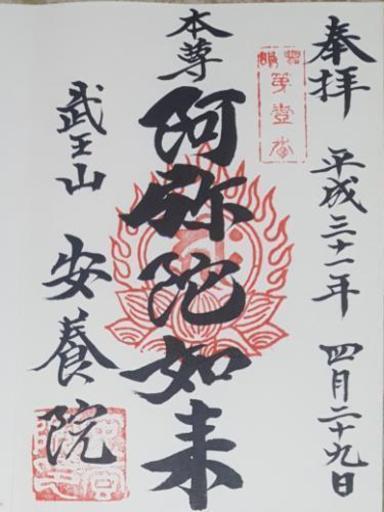 奉拝 平成三十一年 四月二十九日
第壹番
本尊
阿弥陀如来
武王山 安養院